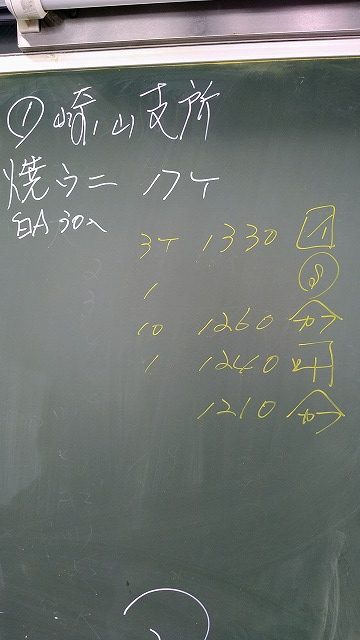 ① 崎山支所
焼ウニ 17ケ
白A 30入
3ケ 1330 イ
1
10 1260 カ
1 1240 叶
1210 カ